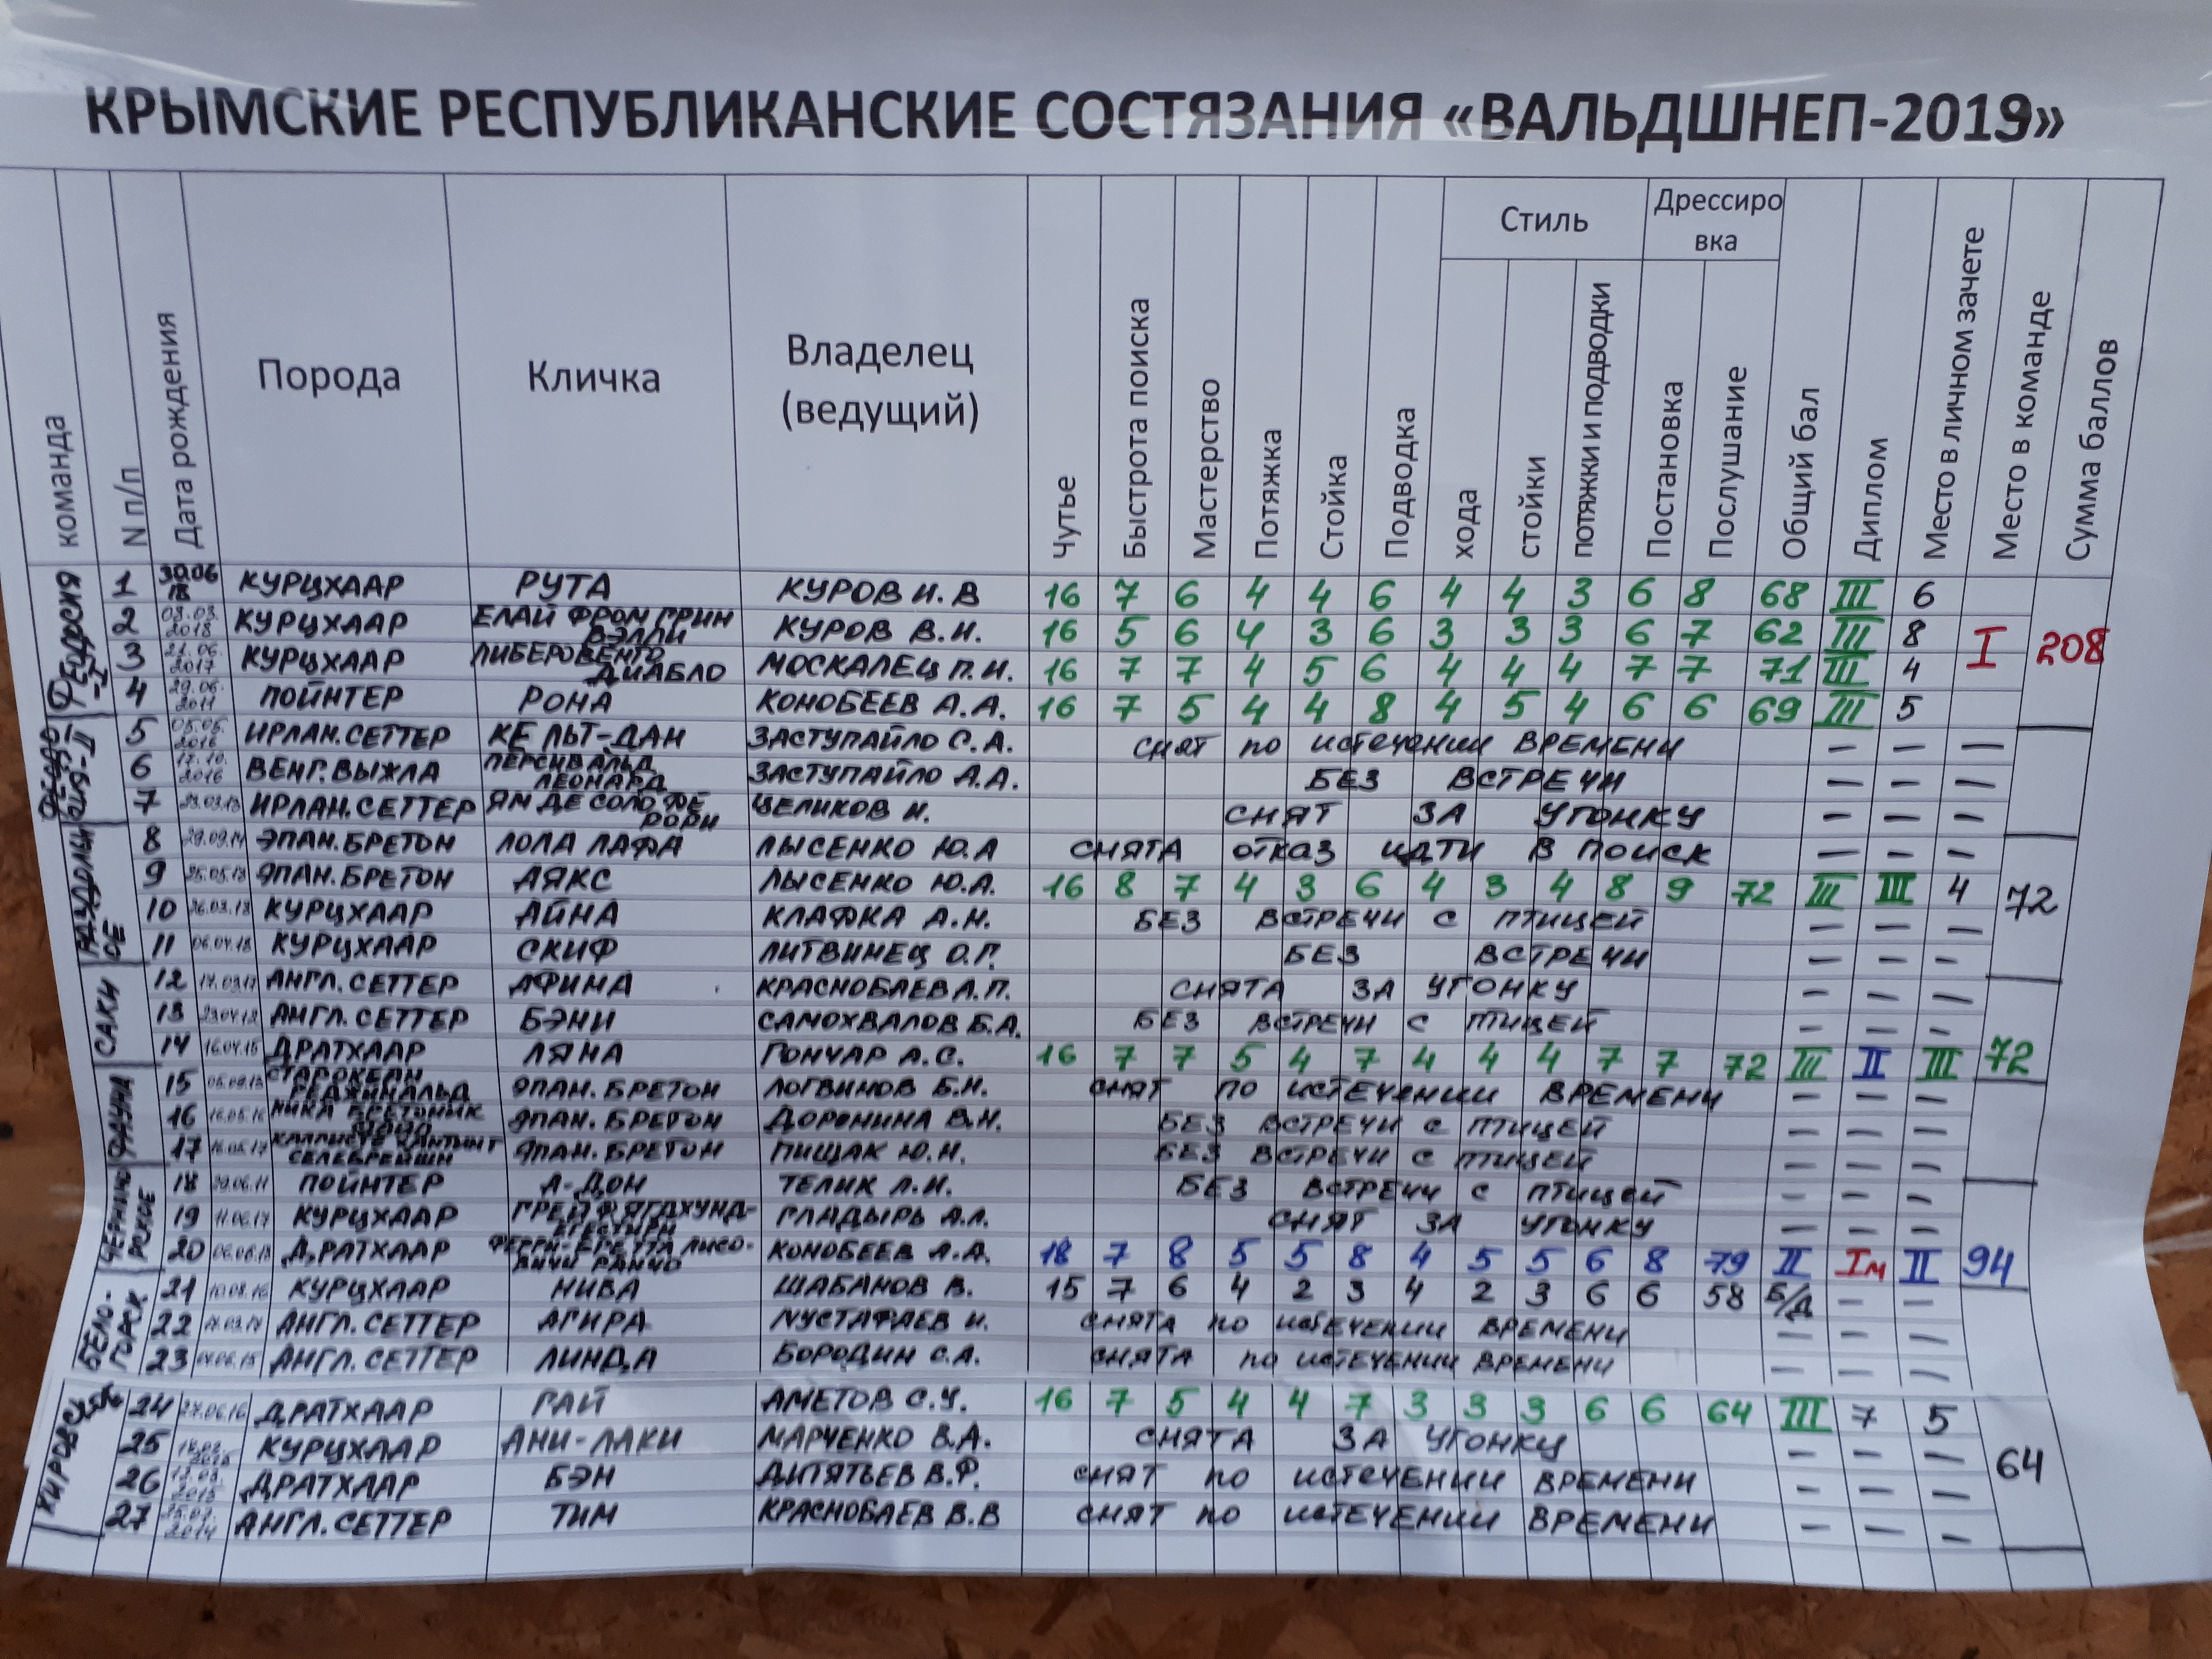 КРЫМСКИЕ РЕСПУБЛИКАНСКИЕ СОСТЯЗАНИЯ «ВАЛЬДШНЕП-2019»
команда N п/п Дата рождения Порода Кличка Владелец (ведущий) Чутье Быстрота поиска Мастерство Потяжка Стойка Подводка Стиль хода стойки потяжки и подводки Дрессировка Постановка Послушание Общий бал Диплом Место в личном зачете Место в команде Сумма баллов
Феодосия -I
1 30.06 18 КУРЦХААР РУТА КУРОВ И. В 16 7 6 4 4 6 4 4 3 6 8 68 III 6
2 08.03. 2018 КУРЦХААР ЕЛАЙ ФРОМ ГРИН ВЭЛЛИ КУРОВ В.И. 16 5 6 4 3 6 3 3 3 6 7 62 III 8 I 208
3 21.06. 2017 КУРЦХААР ЛИБЕРОВЕНГО ДИАБЛО МОСКАЛЕЦ П.И. 16 7 7 4 5 6 4 4 4 7 7 71 III 4
4 29.06. 2011 ПОЙНТЕР РОНА КОНОБЕЕВ А.А. 16 7 5 4 4 8 4 5 4 6 6 69 III 5
5 05.05. 2016 ИРЛАН.СЕТТЕР КЕЛЬТ-ДАН ЗАСТУПАЙЛО С.А. СНЯТ ПО ИСТЕЧЕНИИ ВРЕМЕНИ — — —
6 17.10. 2016 ВЕНГ.ВЫЖЛА ПЕРСИВАЛЬД ЛЕОНАРД ЗАСТУПАЙЛО А.А. БЕЗ ВСТРЕЧИ — — —
7 ИРЛАН.СЕТТЕР ЯМ ДЕ СОЛО ФЕ РОРИ ЦЕЛИКОВ И. СНЯТ ЗА УГОНКУ — — —
РАЗДОЛЬНОЕ
8 29.09.14 ЭПАН.БРЕТОН ЛОЛА ЛАФА ЛЫСЕНКО Ю.А СНЯТА ОТКАЗ ИДТИ В ПОИСК — — —
9 25.05.18 ЭПАН.БРЕТОН АЯКС ЛЫСЕНКО Ю.А. 16 8 7 4 3 6 4 3 4 8 9 72 III III 4 72
10 26.03.18 КУРЦХААР АЙНА КЛАФКА А.Н. БЕЗ ВСТРЕЧИ С ПТИЦЕЙ — — —
11 06.04.18 КУРЦХААР СКИФ ЛИТВИНЕЦ О.Г. БЕЗ ВСТРЕЧИ — — —
САКИ
12 АНГЛ.СЕТТЕР АФИНА КРАСНОБАЕВ А.П. СНЯТА ЗА УГОНКУ — — —
13 АНГЛ.СЕТТЕР БЭНИ САМОХВАЛОВ Б.А. БЕЗ ВСТРЕЧИ С ПТИЦЕЙ — — —
14 16.04.15 ДРАТХААР ЛЯНА ГОНЧАР А.С. 16 7 7 5 4 7 4 4 4 7 7 72 III II III 72
ФАУНА
15 РЕДЖИНАЛЬД ЭПАН. БРЕТОН ЛОГВИНОВ Б.Н. СНЯТ ПО ИСТЕЧЕНИИ ВРЕМЕНИ — — —
16 16.05.16 НИКА ЭПАН. БРЕТОН ДОРОНИНА В.Н. БЕЗ ВСТРЕЧИ С ПТИЦЕЙ — — —
17 СЕЛЕБРЕЙШН ЭПАН. БРЕТОН ПИЩАК Ю.Н. БЕЗ ВСТРЕЧИ С ПТИЦЕЙ — — —
18 29.06.11 ПОЙНТЕР А-ДОН ТЕЛИК Л.И. БЕЗ ВСТРЕЧИ С ПТИЦЕЙ — — —
19 11.06.17 КУРЦХААР ГРЕЙФ ЯГДХУНД- ГЛАДЫРЬ А.Л. СНЯТ ЗА УГОНКУ — — —
20 ДРАТХААР ФЕРРИ- РАНЧО КОНОБЕЕВ А.А. 18 7 8 5 5 8 4 5 5 6 8 79 II Iм II 94
БЕЛОГОРСК
21 10.08.16 КУРЦХААР НИВА ШАБАНОВ В. 15 7 6 4 2 3 4 2 3 6 6 58 Б/Д — —
22 АНГЛ.СЕТТЕР АГИРА МУСТАФАЕВ И. СНЯТА ПО ИСТЕЧЕНИИ ВРЕМЕНИ — — —
23 04.06.15 АНГЛ.СЕТТЕР ЛИНДА БОРОДИН С.А. СНЯТА ПО ИСТЕЧЕНИИ ВРЕМЕНИ — — —
24 27.06.16 ДРАТХААР ГАЙ АМЕТОВ С.У. 16 7 5 4 4 7 3 3 3 6 6 64 III 7 5
25 КУРЦХААР АНИ-ЛАКИ МАРЧЕНКО В.А. СНЯТА ЗА УГОНКУ — — — 64
26 ДРАТХААР БЭН ДИТЯТЬЕВ В.Ф. СНЯТ ПО ИСТЕЧЕНИИ ВРЕМЕНИ — — —
27 2014 АНГЛ.СЕТТЕР ТИМ КРАСНОБАЕВ В.В СНЯТ ПО ИСТЕЧЕНИИ ВРЕМЕНИ — — —